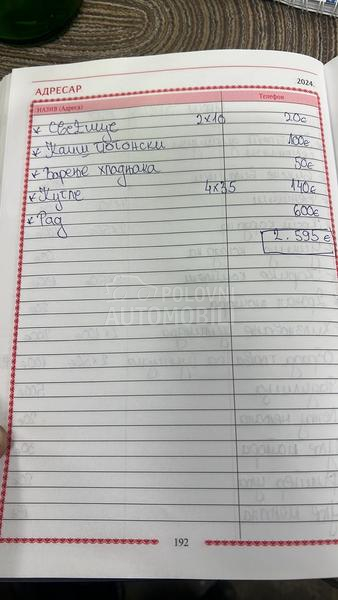 АДРЕСАР 2024.
НАЗИВ (Адреса) Телефон
* Свећице 2x10 20€
* Каиш погонски 100€
* Варење хладњака 50€
* Кугле 4x35 140€
* Рад 600€
2.595€
POLOVNI
AUTOMOBILI
192